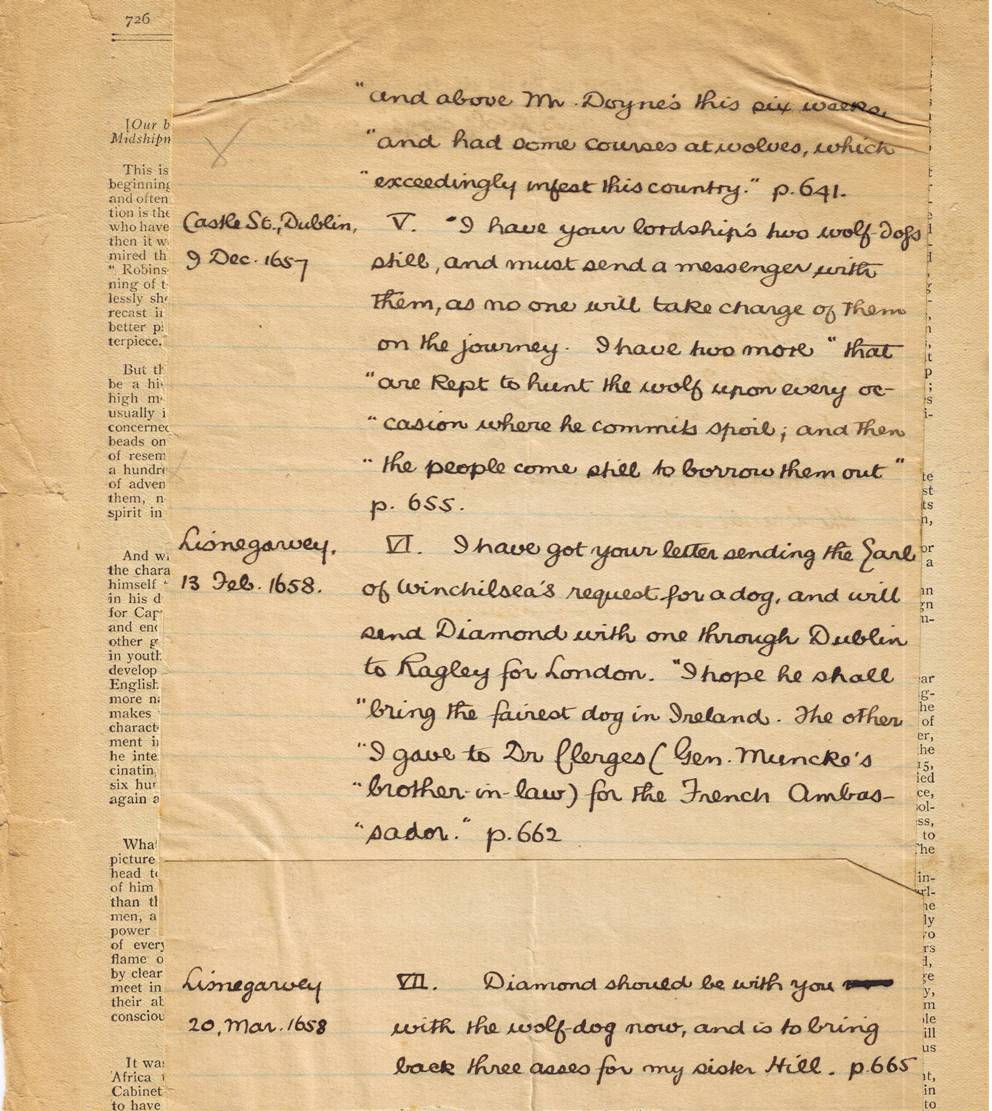 726
[Our b
Midshipn
This is
beginning
and often
tion is the
who have
then it w
mired th
" Robins
ning of t
lessly sh
recast in
better p
terpiece.
But th
be a hi
high m
usually i
concerned
beads on
of resem
a hundre
of adven
them, n
spirit in
And wi
the chara
himself
in his d
for Cap
and enc
other g
in youth
develop
English
more na
makes
charact
ment in
he inte
cinatin
six hur
again a
What
picture
head to
of him
than th
men, a
power
of every
flame o
by clear
meet in
their ab
consciou
It was
Africa
Cabinet
to have
"and above Mr. Doyne's this six weeks,
"and had some courses at wolves, which
"exceedingly infest this country." p. 641.
Castle St., Dublin, V. "I have your lordship's two wolf-dogs
9 Dec. 1657 still, and must send a messenger with
them, as no one will take charge of them
on the journey. I have two more "that
"are kept to hunt the wolf upon every oc-
"casion where he commits spoil; and then
"the people come still to borrow them out"
p. 655.
Lisnegarvey, VI. I have got your letter sending the Earl
13 Feb. 1658. of Winchilsea's request for a dog, and will
send Diamond with one through Dublin
to Ragley for London. "I hope he shall
"bring the fairest dog in Ireland. The other
"I gave to Dr Clerges (Gen. Muncke's
"brother-in-law) for the French Ambas-
"sador." p. 662
Lisnegarvey VII. Diamond should be with you
20, Mar. 1658 with the wolf-dog now, and is to bring
back three asses for my sister Hill. p. 665